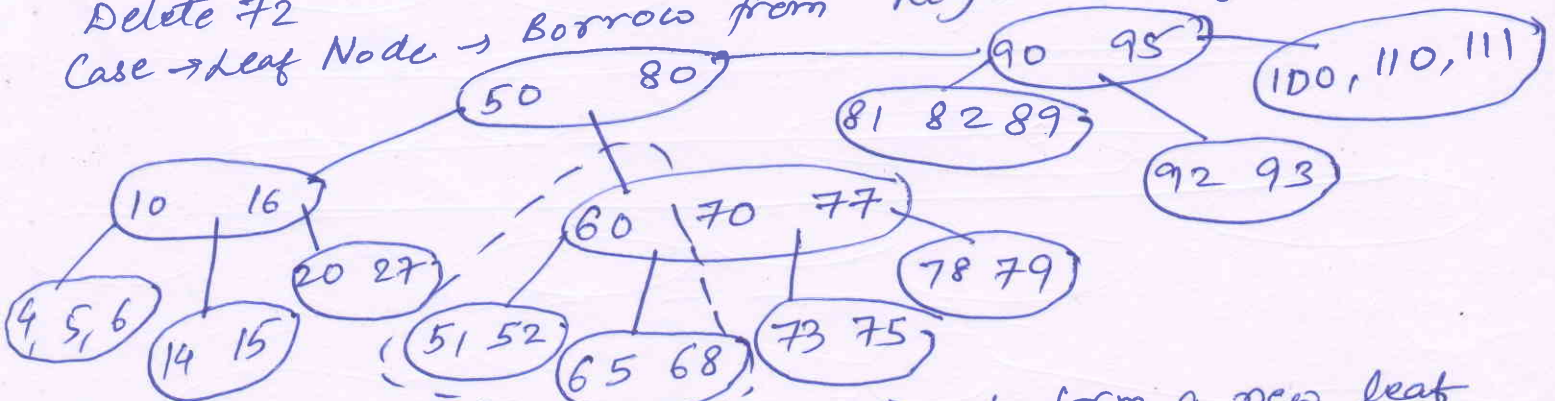 Delete 72
Case → Leaf Node → Borrow from
50 80
90 95
100, 110, 111
81 82 89
92 93
10 16
60 70 77
4, 5, 6
14 15
20 27
51, 52
65 68
73 75
78 79
form a new leaf